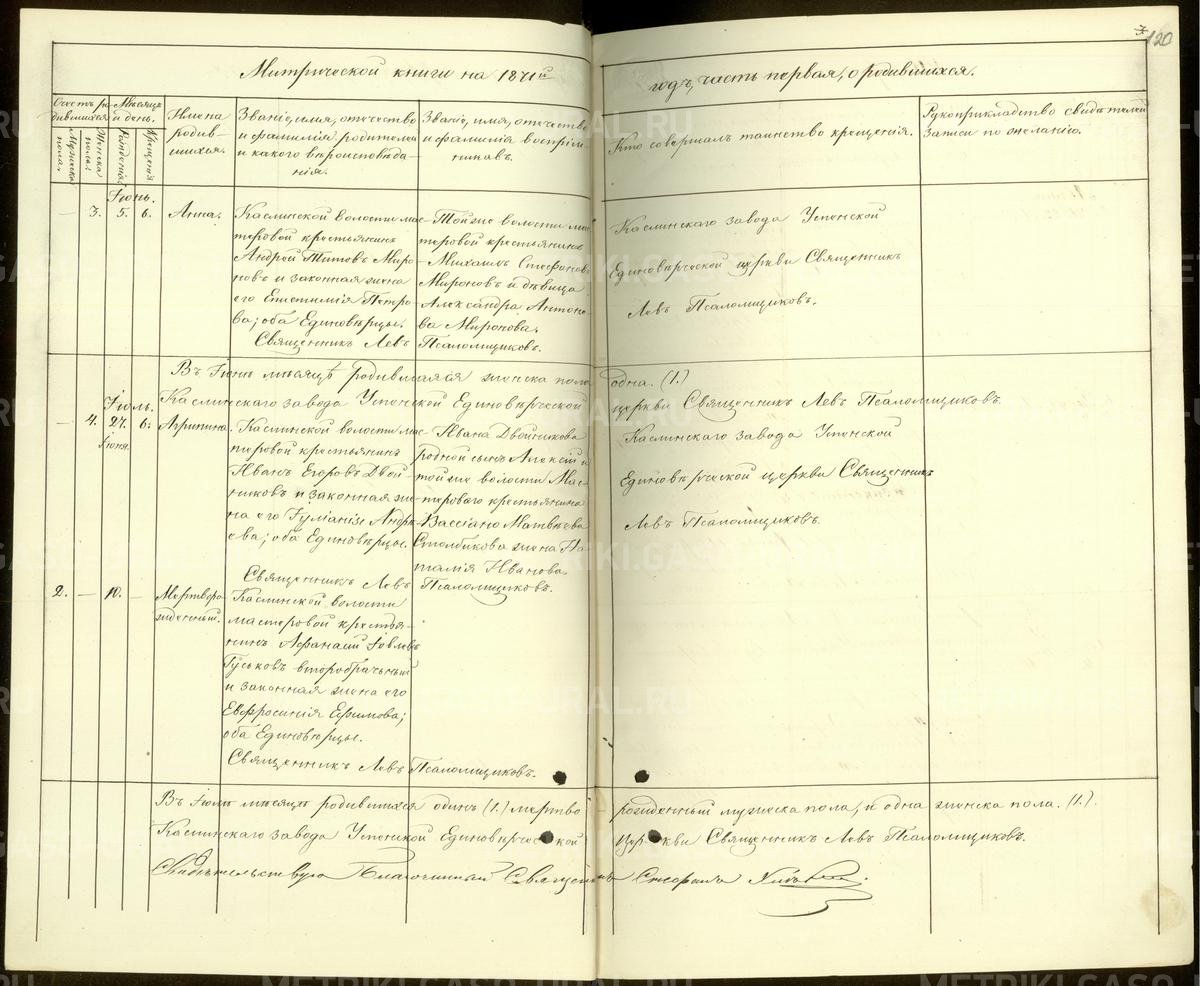 3
120
Митрической книги на 1871й годъ, часть первая, о родившихся.
Счетъ родившихся.
Мѣсяцъ и день.
Имена родившихся.
Званіе, имя, отечество и фамилія родителей и какого вѣроисповѣданія.
Званіе, имя, отечество и фамилія воспріемниковъ.
Кто совершалъ таинство крещенія.
Рукоприкладство свидѣтелей записи по желанію.
Мужска пола.
Женска пола.
Рожденія.
Крещенія
Іюнь.
— 3. 5. 6. Анна.
Каслинской волости мас-
теровой крестьянинъ
Андрей Титовъ Миро-
новъ и законная жена
его Евѳимія Петро-
ва; оба Единовѣрцы.
Тойже волости мас-
теровой крестьянинъ
Михаилъ Стефановъ
Мироновъ и дѣвица
Александра Антоно-
ва Миронова.
Священникъ Левъ Псаломщиковъ.
Каслинскаго завода Успенской
Единовѣрческой церкви Священникъ
Левъ Псаломщиковъ.
Въ Іюнѣ мѣсяцѣ родившаяся женска пола одна. (1.)
Каслинскаго завода Успенской Единовѣрческой церкви Священникъ Левъ Псаломщиковъ.
Іюль.
— 4. 27. 6. Агрипина.
Іюня.
Каслинской волости мас-
теровой крестьянинъ
Иванъ Егоровъ Двой-
никовъ и законная же-
на его Іуліанія Андре-
ева; оба Единовѣрцы.
Ивана Двойникова
родной сынъ Алексій и
тойже волости Мас-
тероваго крестьянина
Вассіано Матвѣева
Столбикова жена На-
талія Иванова.
Священникъ Левъ Псаломщиковъ.
Каслинскаго завода Успенской
Единовѣрческой церкви Священникъ
Левъ Псаломщиковъ.
2. — 10. — Мертворо-
жденный.
Каслинской волости
мастеровой крестья-
нинъ Афанасій Іовлевъ
Гуськовъ второбрачный
и законная жена его
Евфросинія Ефимова;
оба Единовѣрцы.
Священникъ Левъ Псаломщиковъ.
Въ Іюлѣ мѣсяцѣ родившихся одинъ (1.) мертворожденный мужеска пола, и одна женска пола. (1.).
Каслинскаго завода Успенской Единовѣрческой церкви Священникъ Левъ Псаломщиковъ.
Свидѣтельствую Благочинный Священникъ
METRIKI.GASO-URAL.RU